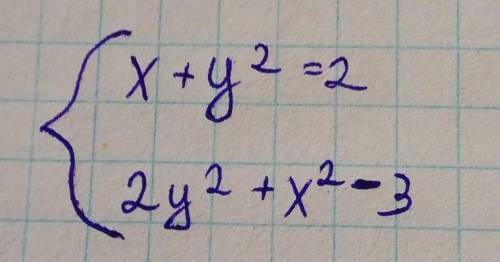 x + y² = 2
2y² + x² - 3